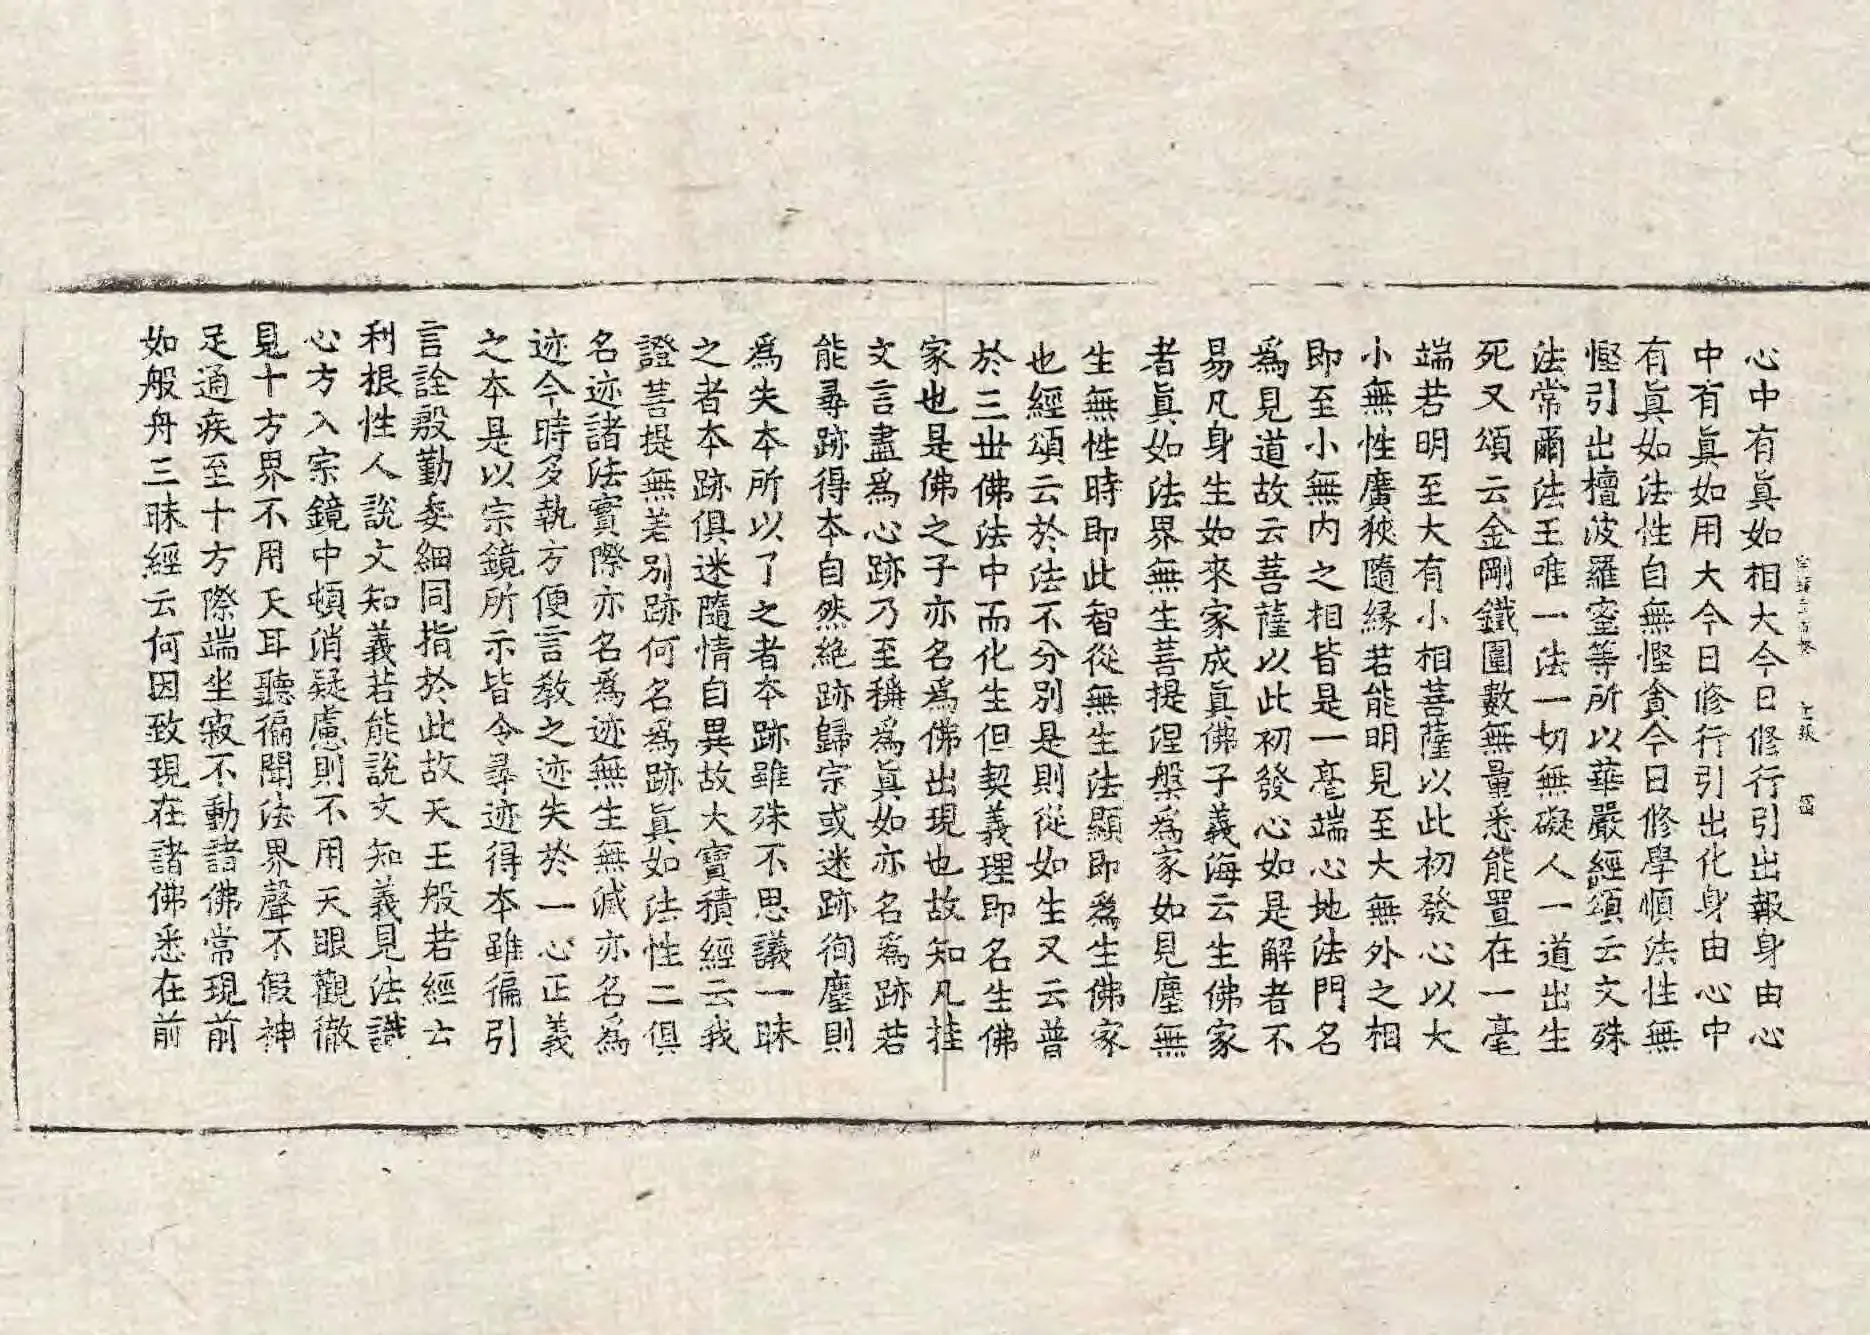 心中有眞如相大今日修行引出報身由心
中有眞如用大今日修行引出化身由心中
有眞如法性自無慳貪今日修學順法性無
慳引出檀波羅蜜等所以華嚴經頌云文殊
法常爾法王唯一法一切無礙人一道出生
死又頌云金剛鐵圍數無量悉能置在一毫
端若明至大有小相菩薩以此初發心以大
小無性廣狹隨縁若能明見至大無外之相
即至小無內之相皆是一毫端心地法門名
爲見道故云菩薩以此初發心如是解者不
易凡身生如來家成眞佛子義海云生佛家
者眞如法界無生菩提涅槃爲家如見塵無
生無性時即此智從無生法顯即爲生佛家
也經頌云於法不分別是則從如生又云普
於三世佛法中而化生但契義理即名生佛
家也是佛之子亦名爲佛出現也故知凡挂
文言盡爲心跡乃至稱爲眞如亦名爲跡若
能尋跡得本自然絶跡歸宗或迷跡徇塵則
爲失本所以了之者本跡雖殊不思議一昧
之者本跡俱迷隨情自異故大寶積經云我
證菩提無差別跡何名爲跡眞如法性二俱
名迹諸法實際亦名爲迹無生無滅亦名爲
迹今時多執方便言教之迹失於一心正義
之本是以宗鏡所示皆令尋迹得本雖徧引
言詮殷勤委細同指於此故天王般若經云
利根性人說文知義若能說文知義見法識
心方入宗鏡中頓消疑慮則不用天眼觀徹
見十方界不用天耳聽徧聞法界聲不假神
足通疾至十方際端坐寂不動諸佛常現前
如般舟三昧經云何因致現在諸佛悉在前